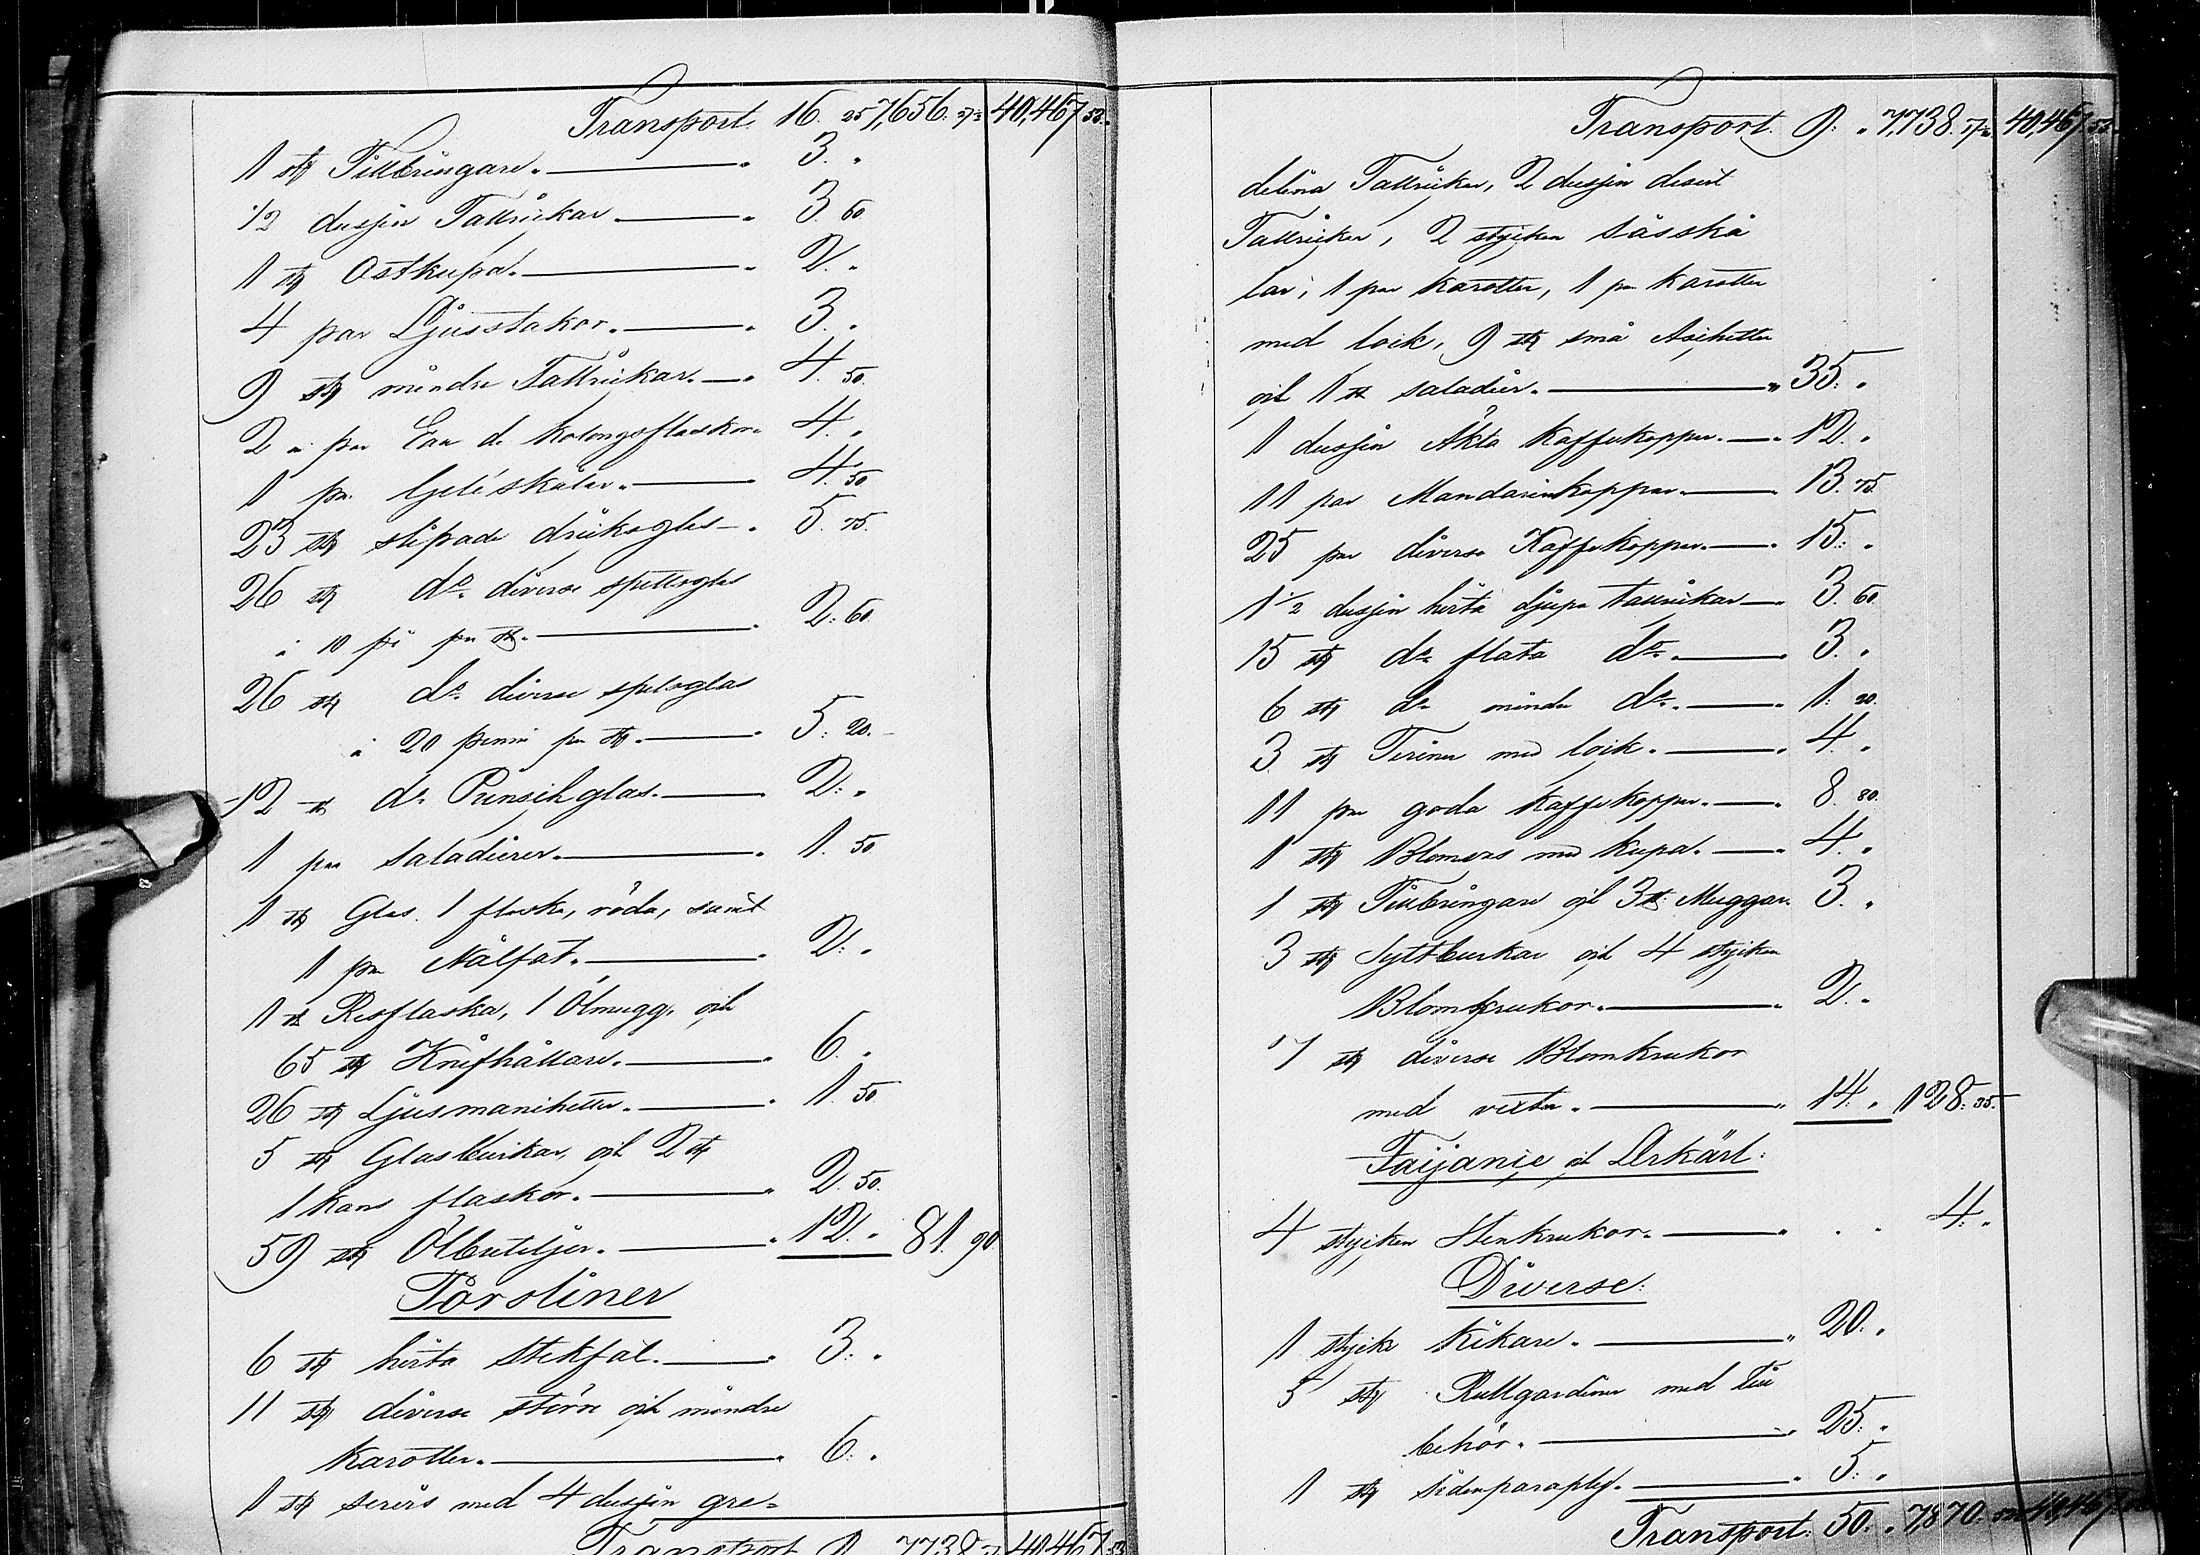 Transport. 16. 25 7,656. 27½ 40,467 53.
1 st Tillbringare. 3. "
½ dusjin Tallrickar. 3. 60
1 st Ostkupa. 2. "
4 par Ljusstakar. 3. "
9 st mindre Tallrickar. 4. 50.
2 a par Eau de kolongsflaskor 4. "
1 par Geléskålar. 4. 50
23 st slipade dricksglas 5. 75.
26 st do. diverse spettsglas
a 10 pi per st. 2: 60
26 st do. diverse spetsglas
a 20 penni per st. 5: 20.
12 st do Punschglas. 2: "
1 par saladierer. 1. 50
1 st Glas. 1 flaska, röda, samt
1 par Nålfat. 2: "
1 st Resflaska, 1 Ölmugg, och
65 st Knifhållare. 6. "
26 st Ljusmanchetter. 1. 50
5 st Glasburkar, och 2 st
1 kans flaskor. 2. 50.
59 st Ölbuteljer. 12. " 81. 90
Porsliner
6 st hvita Stekfat. 3: "
11 st diverse större och mindre
karotter. 6: "
1 st servis med 4 dusjin gre=
Transport 9 7738 40467 53
Transport. 9: " 7,738. 17½ 40,467 53.
delina Tallricker, 2 dusjin desert
Tallricker, 2 stycken såsskå
lar, 1 par karotter, 1 par karotter
med lock, 9 st små Aschetter
och 1 st saladier. 35: "
1 dusjin Äkta kaffekoppar. 12. "
11 par Mandarinkoppar. 13. 75.
25 par diverse Kaffekoppar. 15: "
1½ dusjin hvita djupa tallrikar 3. 60.
15 st do flata do. 3. "
6 st do mindre do. 1: 20.
3 st Teriner med lock. 4. "
11 par goda kaffekoppar. 8. 80.
1 st Blomvas med kupa. 4. "
1 st Tillbringare och 3 st Muggar. 3. "
3 st Syltburkar och 4 stycken
Blomkrukor. 2. "
17 st diverse Blomkrukor
med vexter. 14: " 128: 35.
Faijance och Lerkärl:
4 stycken Stenkrukor. 4: "
Diverse:
1 stycke kikare. 20. "
5 st Rullgardiner med till
behör. 25: "
1 st sidenparaply. 5: "
Transport: 50: " 7,870. 40,467